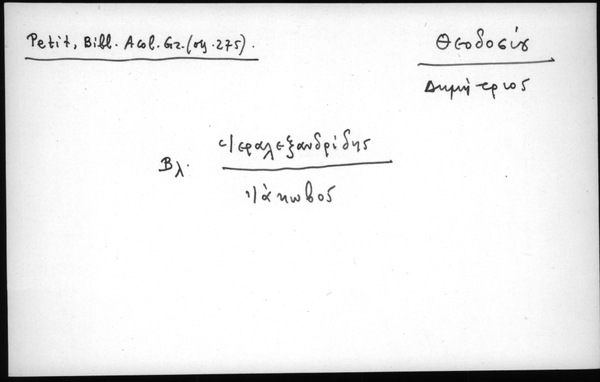 Petit, Bibl. Acol. Gr. (ση. 275).
Θεοδοσίου
Δημήτριος
Βλ. Ἱεραλεξανδρίδης
Ἰάκωβος